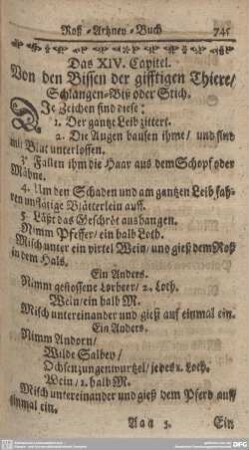 Roß-Artzney-Buch 745
Das XIV. Capitel.
Von den Bissen der gifftigen Thiere/
Schlangen-Biß oder Stich.
Die Zeichen sind diese:
1. Der gantze Leib zittert.
2. Die Augen bausen ihme/ und sind
mit Blut unterloffen.
3. Fallen ihm die Haar aus dem Schopf oder
Mähne.
4. Um den Schaden und am gantzen Leib fah-
ren unflätige Blätterlein auff.
5. Läßt das Geschröt aushangen.
Nimm Pfeffer/ ein halb Loth.
Misch unter ein virtel Wein/ und gieß dem Roß
in dem Hals.
Ein Anders.
Nimm gestossene Lorbeer/ 2. Loth.
Wein/ ein halb M.
Misch untereinander und gieß auf einmal ein.
Ein Anders.
Nimm Andorn/
Wilde Salbey/
Ochsenzungenwurtzel/ jedes 2. Loth.
Wein/ 1. halb M.
Misch untereinander und gieß dem Pferd auff
einmal ein.
Aaa 5. Ein